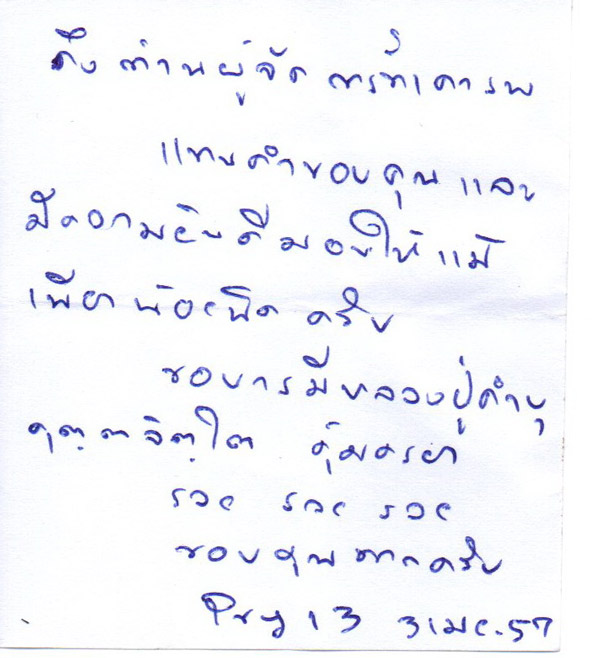 ถึง ท่านผู้จัด การที่เคารพ
แทนคำขอบคุณ และ
มีความยินดีมอบให้ แม้
เพียง น้อยนิด ครับ
ขอบารมีหลวงปู่คำบุ
คุตฺตจิตฺโต คุ้มครอง
รวย รวย รวย
ขอบคุณมากครับ
Pry 13 31 เมย.57